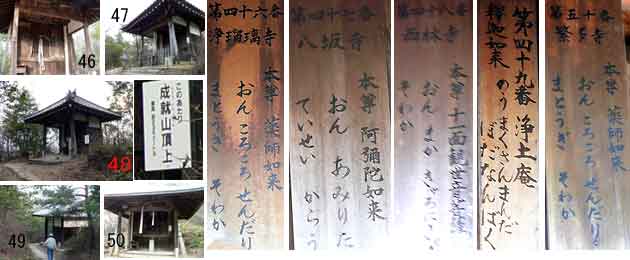 46
47
48
このあたり
成就山頂上
49
50
第四十六番
浄瑠璃寺
本尊 薬師如来
おん ころころ せんだり
まとうぎ そわか
第四十七番
八坂寺
本尊 阿彌陀如来
おん あみりた
ていせい からう
第四十八番
西林寺
本尊 十一面観世音菩薩
おん まか きゃろにきゃ
そわか
第四十九番 浄土庵
釈迦如来
のうまくさんまんだ
ぼだなんばく
第五十番
繁多寺
本尊 薬師如来
おん ころころ せんだり
まとうぎ そわか